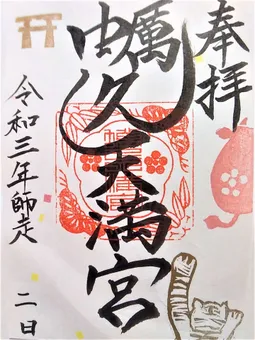 奉拝
蠣久天満宮
令和三年師走 二日